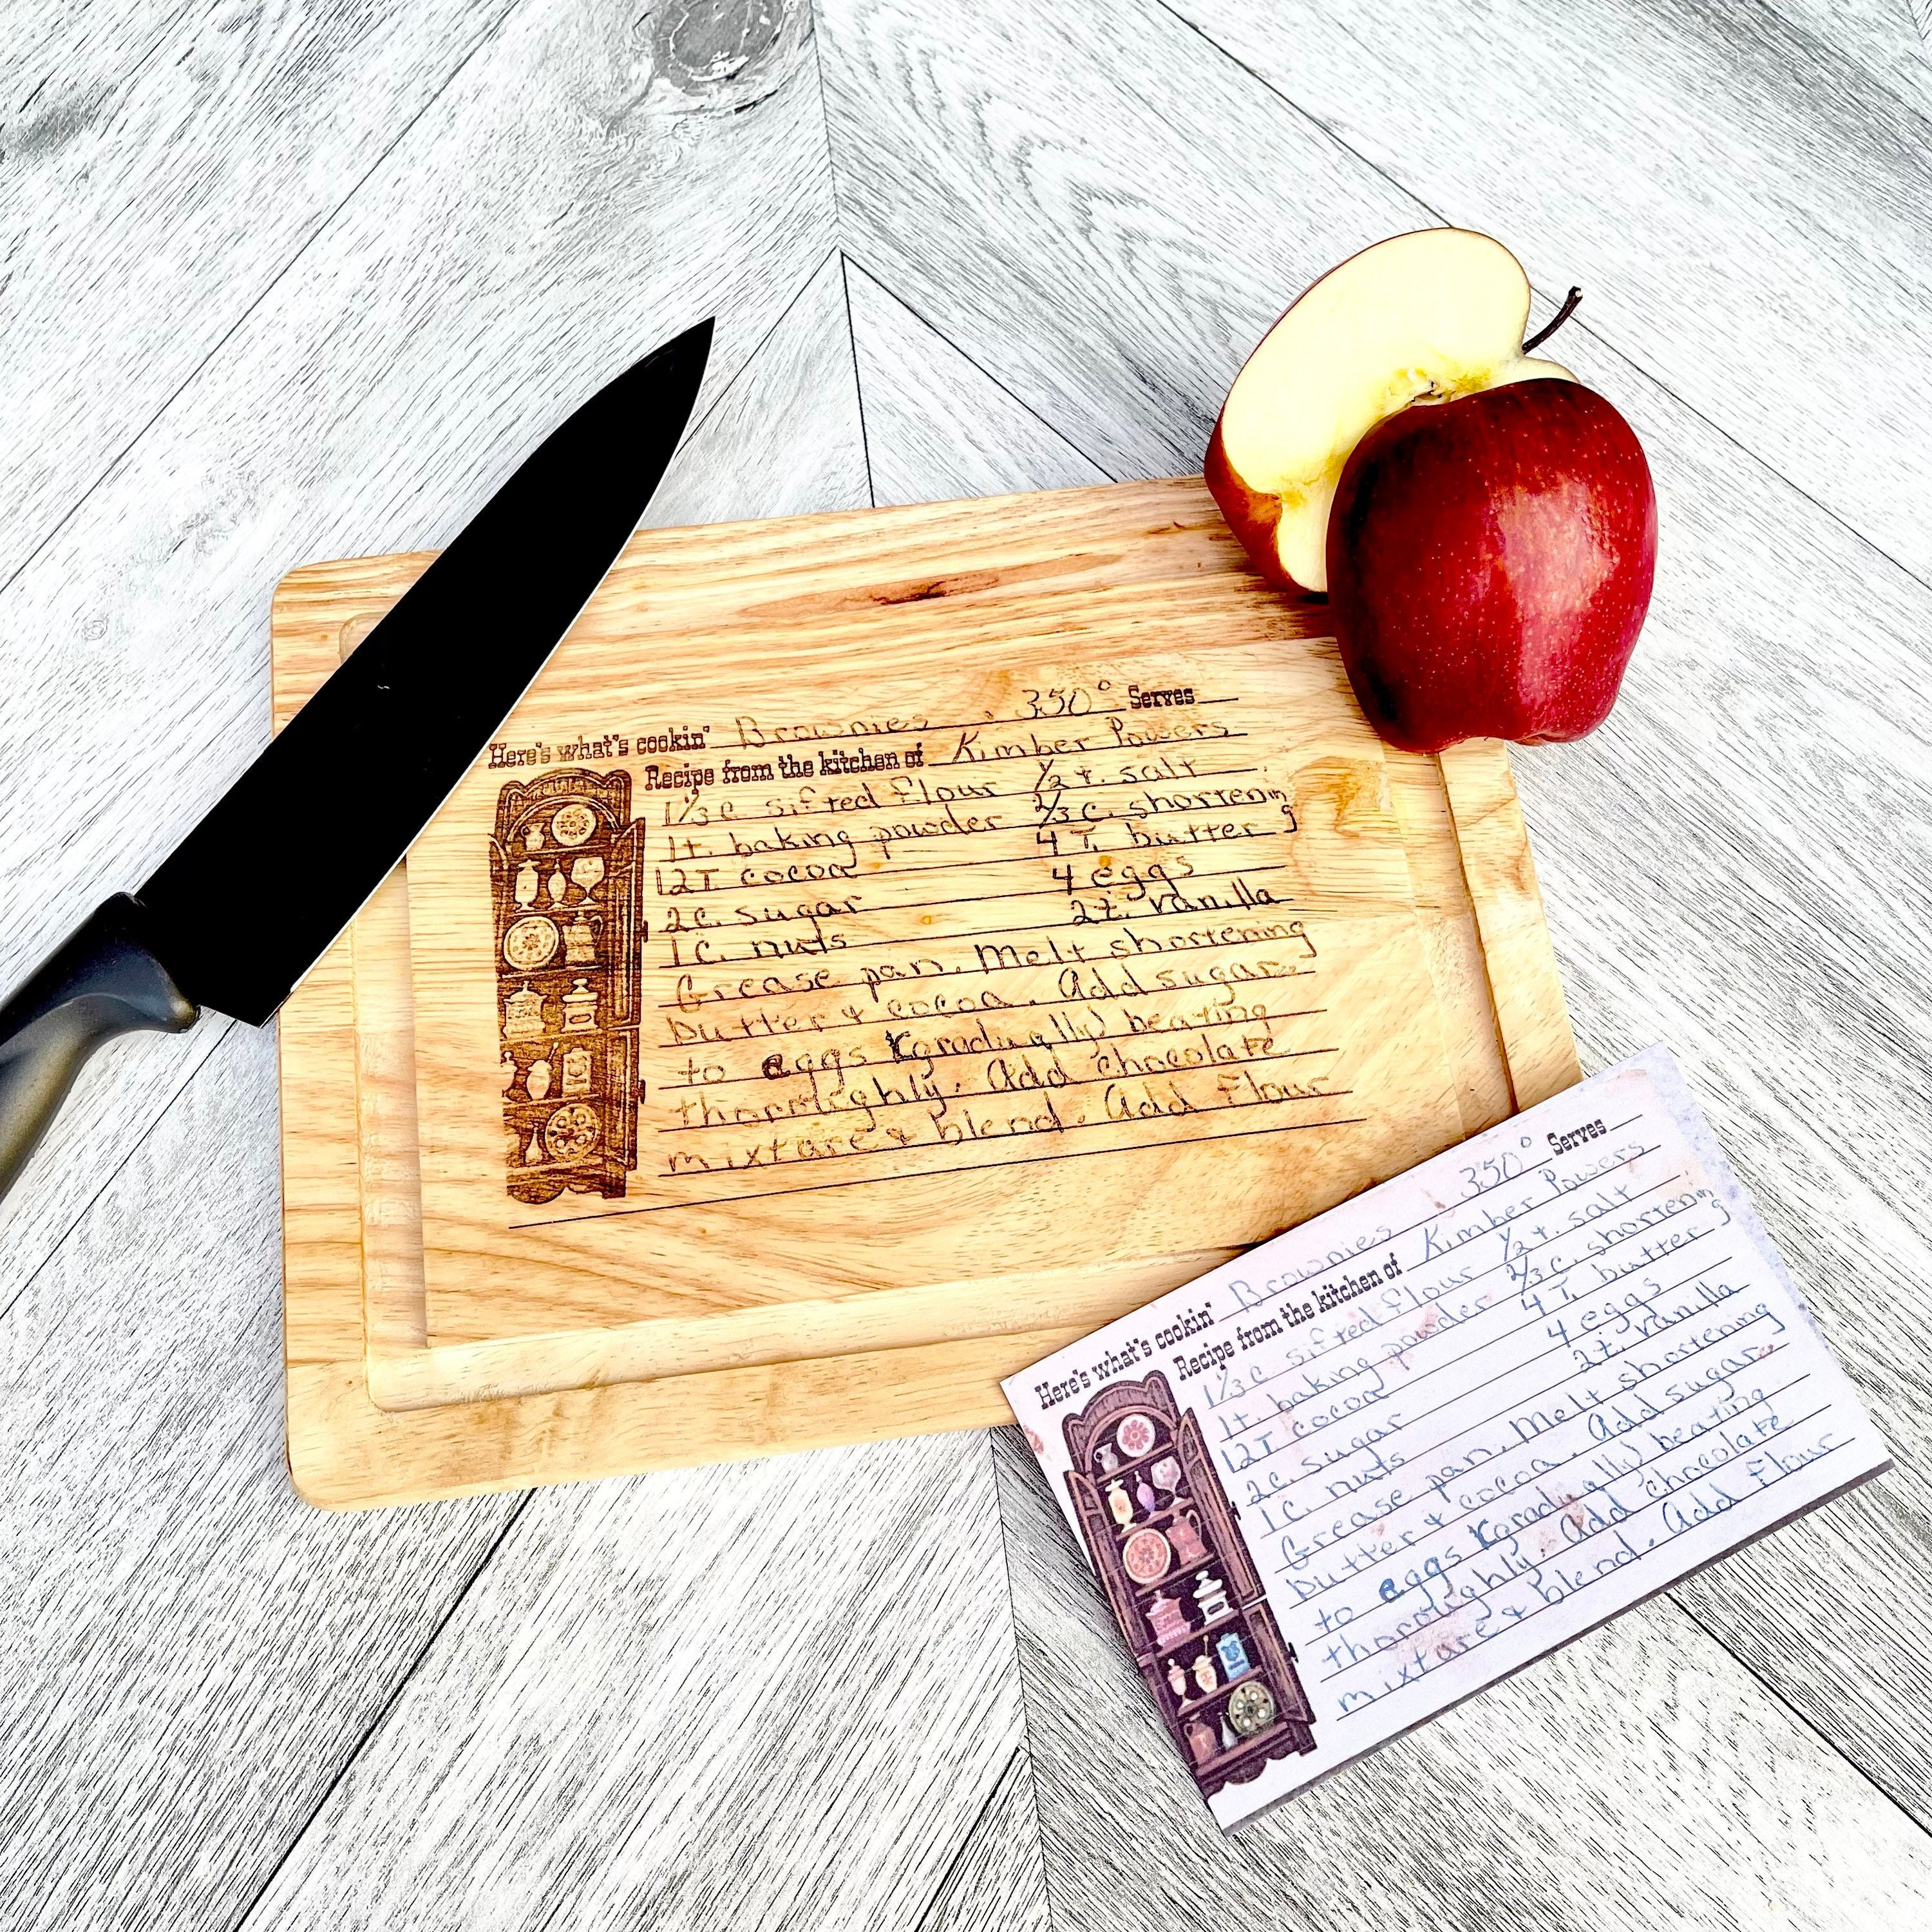 Here's what's cookin' Brownies 350° Serves
Recipe from the kitchen of Kimber Powers
1 1/3 c sifted flour 1/2 t. salt
1t. baking powder 2/3 c. shortening
12T cocoa 4 T. butter
2c. sugar 4 eggs
1 c. nuts 2t. vanilla
Grease pan. Melt shortening
butter & cocoa. Add sugar
to eggs (gradually) beating
thoroughly. Add chocolate
mixture & blend. Add flour
Here's what's cookin' Brownies 350° Serves
Recipe from the kitchen of Kimber Powers
1 1/3 c sifted flour 1/2 t. salt
1t. baking powder 2/3 c. shortening
12T cocoa 4 T. butter
2c. sugar 4 eggs
1 c. nuts 2t. vanilla
Grease pan. Melt shortening
butter & cocoa. Add sugar
to eggs (gradually) beating
thoroughly. Add chocolate
mixture & blend. Add flour